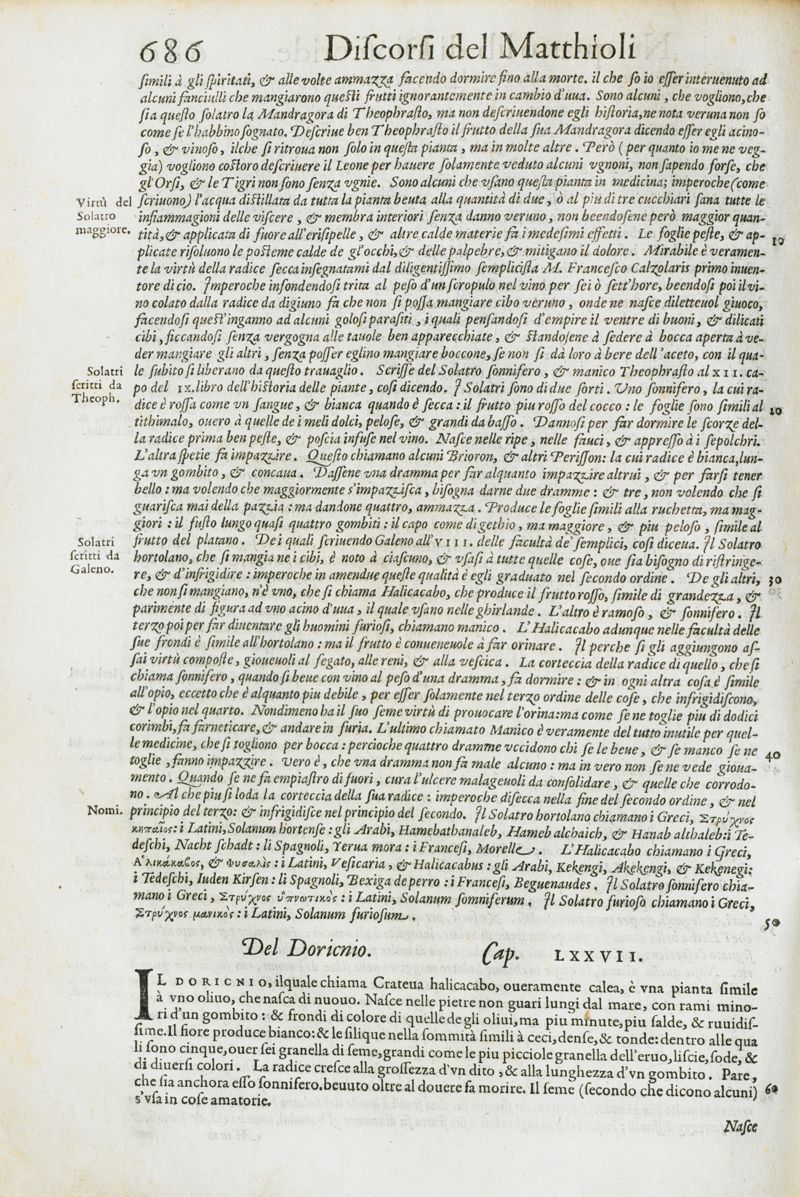 686 Diſcorſi del Matthioli
ſimili à gli ſpiritati, & alle volte ammazza facendo dormire fino alla morte. il che ſo io eſſer interuenuto ad
alcuni fanciulli che mangiarono queſti frutti ignorantemente in cambio d'uua. Sono alcuni, che vogliono, che
ſia queſto ſolatro la Mandragora di Theophraſto, ma non deſcriuendone egli hiſtoria, ne nota veruna non ſo
come ſe l'habbino ſognato. Deſcriue ben Theophraſto il frutto della ſua Mandragora dicendo eſſer egli acino-
ſo, & vinoſo, ilche ſi ritroua non ſolo in queſta pianta, ma in molte altre. Però (per quanto io me ne veg-
gia) vogliono coſtoro deſcriuere il Leone per hauere ſolamente veduto alcuni vgnoni, non ſapendo forſe, che
gl'Orſi, & le Tigri non ſono ſenza vgnie. Sono alcuni che vſano queſta pianta in medicina; imperoche (come
Virtù del Solatro maggiore.
ſcriuono) l'acqua diſtillata da tutta la pianta beuta alla quantità di due, ò al piu di tre cucchiari ſana tutte le
infiammagioni delle viſcere, & membra interiori ſenza danno veruno, non beendoſene però maggior quan-
tità, & applicata di fuore all'eriſipelle, & altre calde materie fa i medeſimi effetti. Le foglie peſte, & ap-
10
plicate riſoluono le poſteme calde de gl'occhi, & delle palpebre, & mitigano il dolore. Mirabile è veramen-
te la virtù della radice ſecca inſegnatami dal diligentiſſimo ſempliciſta M. Franceſco Calzolaris primo inuen-
tore di cio. Imperoche infondendoſi trita al peſo d'un ſcropulo nel vino per ſei ò ſett'hore, beendoſi poi il vi-
no colato dalla radice da digiuno fa che non ſi poſſa mangiare cibo veruno, onde ne naſce diletteuol giuoco,
facendoſi queſt'inganno ad alcuni goloſi paraſiti, i quali penſandoſi d'empire il ventre di buoni, & dilicati
cibi, ficcandoſi ſenza vergogna alle tauole ben apparecchiate, & ſtandoſene à ſedere à bocca aperta à ve-
der mangiare gli altri, ſenza poſſer eglino mangiare boccone, ſe non ſi dà loro à bere dell'aceto, con il qua-
Solatri ſcritti da Theoph.
le ſubito ſi liberano da queſto trauaglio. Scriſſe del Solatro ſonnifero, & manico Theophraſto al XII. ca-
po del IX. libro dell'hiſtoria delle piante, coſi dicendo. I Solatri ſono di due ſorti. Vno ſonnifero, la cui ra-
dice è roſſa come vn ſangue, & bianca quando è ſecca: il frutto piu roſſo del cocco: le foglie ſono ſimili al
20
tithimalo, ouero à quelle de i meli dolci, peloſe, & grandi da baſſo. Dannoſi per far dormire le ſcorze del-
la radice prima ben peſte, & poſcia infuſe nel vino. Naſce nelle ripe, nelle fauci, & appreſſo à i ſepolchri.
L'altra ſpetie fa impazzire. Queſto chiamano alcuni Brioron, & altri Periſſon: la cui radice è bianca, lun-
ga vn gombito, & concaua. Daſſene vna dramma per far alquanto impazzire altrui, & per farſi tener
bello: ma volendo che maggiormente s'impazziſca, biſogna darne due dramme: & tre, non volendo che ſi
guariſca mai della pazzia: ma dandone quattro, ammazza. Produce le foglie ſimili alla ruchetta, ma mag-
giori: il fuſto lungo quaſi quattro gombiti: il capo come di gethio, ma maggiore, & piu peloſo, ſimile al
Solatri ſcritti da Galeno.
frutto del platano. De i quali ſcriuendo Galeno all'VIII. delle facultà de' ſemplici, coſi diceua. Il Solatro
hortolano, che ſi mangia ne i cibi, è noto à ciaſcuno, & vſaſi à tutte quelle coſe, oue ſia biſogno di riſtringe-
re, & d'infrigidire: imperoche in amendue queſte qualità è egli graduato nel ſecondo ordine. De gli altri,
30
che non ſi mangiano, n'è vno, che ſi chiama Halicacabo, che produce il frutto roſſo, ſimile di grandezza, &
parimente di figura ad vno acino d'uua, il quale vſano nelle ghirlande. L'altro è ramoſo, & ſonnifero. Il
terzo poi per far diuentare gli huomini furioſi, chiamano manico. L'Halicacabo adunque nelle facultà delle
ſue frondi è ſimile all'hortolano: ma il frutto è conueneuole à far orinare. Il perche ſi gli aggiungono aſ-
ſai virtù compoſte, gioueuoli al fegato, alle reni, & alla veſcica. La corteccia della radice di quello, che ſi
chiama ſonnifero, quando ſi beue con vino al peſo d'una dramma, fa dormire: & in ogni altra coſa è ſimile
all'opio, eccetto che è alquanto piu debile, per eſſer ſolamente nel terzo ordine delle coſe, che infrigidiſcono,
& l'opio nel quarto. Nondimeno ha il ſuo ſeme virtù di prouocare l'orina: ma come ſe ne toglie piu di dodici
corimbi, fa farneticare, & andare in furia. L'ultimo chiamato Manico è veramente del tutto inutile per quel-
le medicine, che ſi togliono per bocca: percioche quattro dramme vccidono chi ſe le beue, & ſe manco ſe ne
toglie, fanno impazzire. Vero è, che vna dramma non fa male alcuno: ma in vero non ſe ne vede gioua-
40
mento. Quando ſe ne fa empiaſtro di fuori, cura l'ulcere malageuoli da conſolidare, & quelle che corrodo-
no. Al che piu ſi loda la corteccia della ſua radice: imperoche diſecca nella fine del ſecondo ordine, & nel
Nomi.
principio del terzo: & infrigidiſce nel principio del ſecondo. Il Solatro hortolano chiamano i Greci, Στρύχνος
κηπαῖος: i Latini, Solanum hortenſe: gli Arabi, Hamebathanaleb, Hameb alchaich, & Hanab althaleb: i Te-
deſchi, Nacht ſchadt: li Spagnoli, Yerua mora: i Franceſi, Morelle. L'Halicacabo chiamano i Greci,
Α'λικάκαβος, & Φυσαλὶς: i Latini, Veſicaria, & Halicacabus: gli Arabi, Kekengi, Akekengi, & Kekenegi:
i Tedeſchi, Iuden Kirſen: li Spagnoli, Bexiga de perro: i Franceſi, Beguenaudes. Il Solatro ſonnifero chia-
mano i Greci, Στρύχνος ὑπνωτικὸς: i Latini, Solanum ſomniferum. Il Solatro furioſo chiamano i Greci,
Στρύχνος μανικὸς: i Latini, Solanum furioſum.
50
Del Doricnio. Cap. LXXVII.
IL DORICNIO, ilquale chiama Crateua halicacabo, oueramente calea, è vna pianta ſimile
à vno oliuo, che naſca di nuouo. Naſce nelle pietre non guari lungi dal mare, con rami mino-
ri d'un gombito: & frondi di colore di quelle de gli oliui, ma piu minute, piu ſalde, & ruuidiſ-
ſime. Il fiore produce bianco: & le ſilique nella ſommità ſimili à ceci, denſe, & tonde: dentro alle qua
li ſono cinque, ouer ſei granella di ſeme, grandi come le piu picciole granella dell'eruo, liſcie, ſode, &
di diuerſi colori. La radice creſce alla groſſezza d'vn dito, & alla lunghezza d'vn gombito. Pare,
che ſia anchora eſſo ſonnifero. beuuto oltre al douere fa morire. Il ſeme (ſecondo che dicono alcuni)
60
s'vſa in coſe amatorie.
Naſce